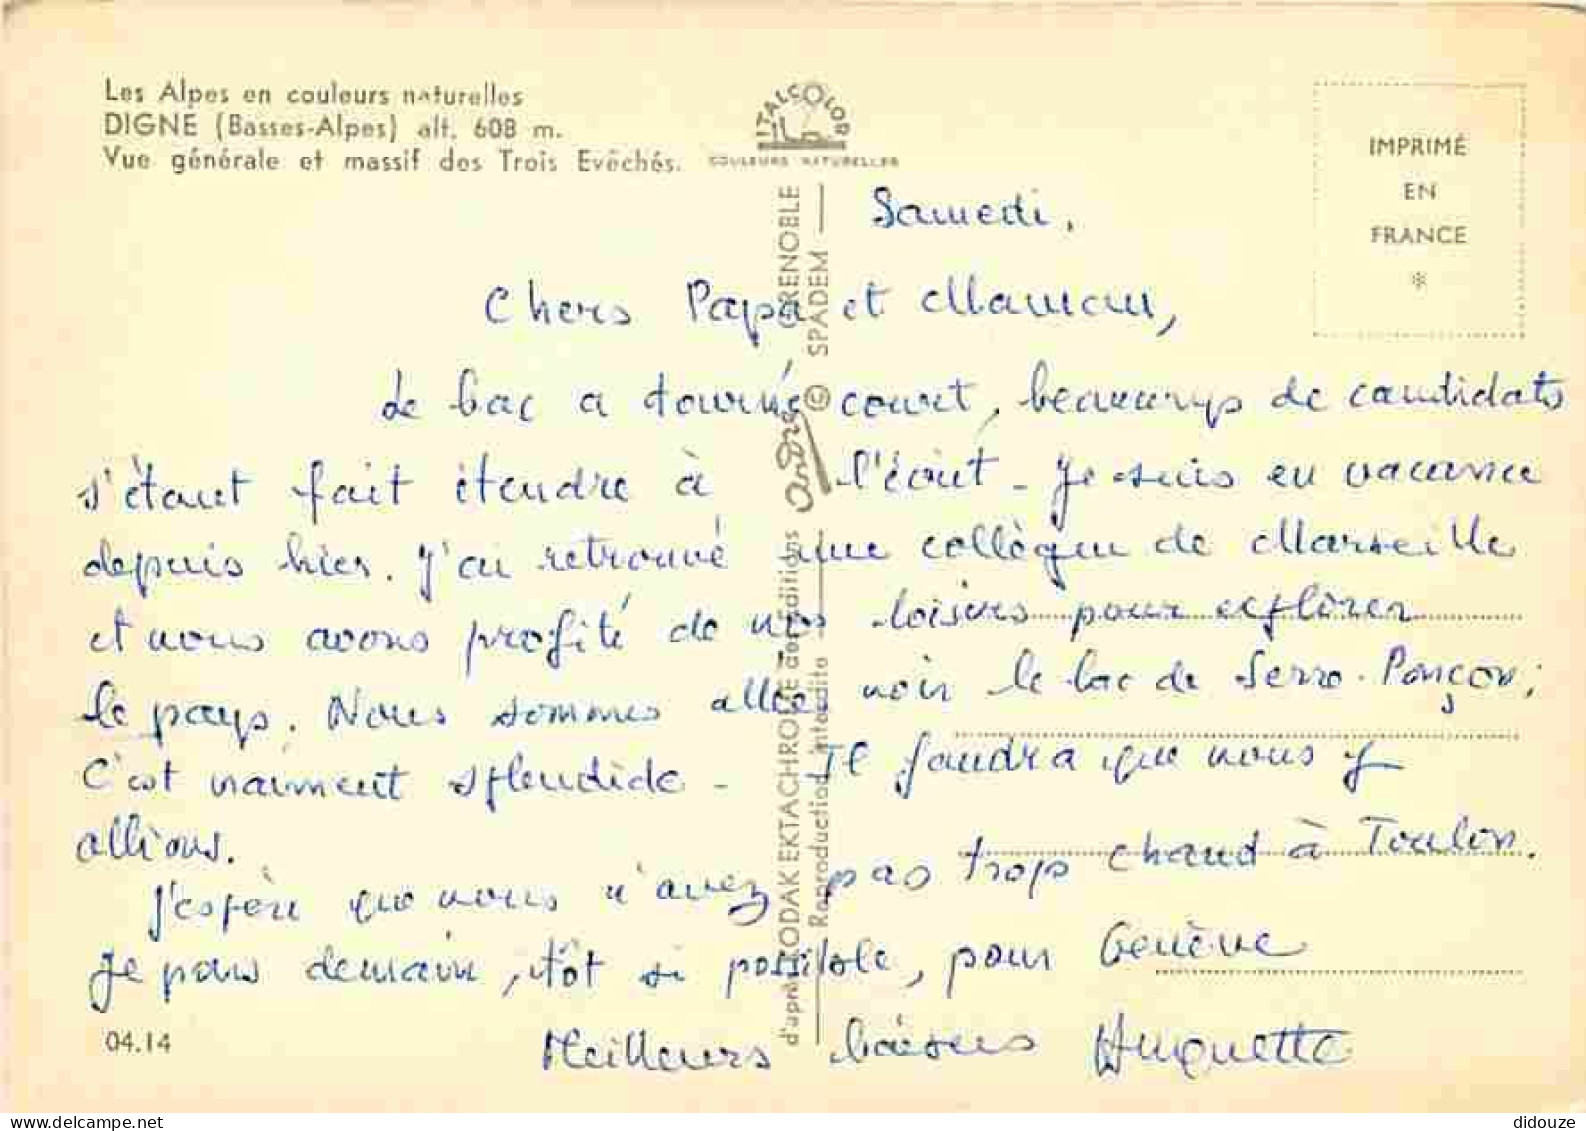 Les Alpes en couleurs naturelles
DIGNE (Basses-Alpes) alt. 608 m.
Vue générale et massif des Trois Evêchés.
ITALCOLOR
COULEURS NATURELLES
IMPRIMÉ
EN
FRANCE
*
Samedi,
Chers Papa et Maman,
Le bac a tourné court, beaucoup de candidats
s'étant fait étendre à l'écrit - Je suis en vacance
depuis hier. J'ai retrouvé une collègue de Marseille
et nous avons profité de nos loisirs pour explorer
le pays. Nous sommes allées voir le lac de Serre-Ponçon;
C'est vraiment splendide - Il faudra que nous y
allions.
J'espère que vous n'avez pas trop chaud à Toulon.
Je pars demain, tôt si possible, pour Genève
Meilleurs baisers Huguette
04.14
d'après KODAK EKTACHROME des Editions André GRENOBLE
Reproduction interdite © SPADEM
didouze
www.delcampe.net